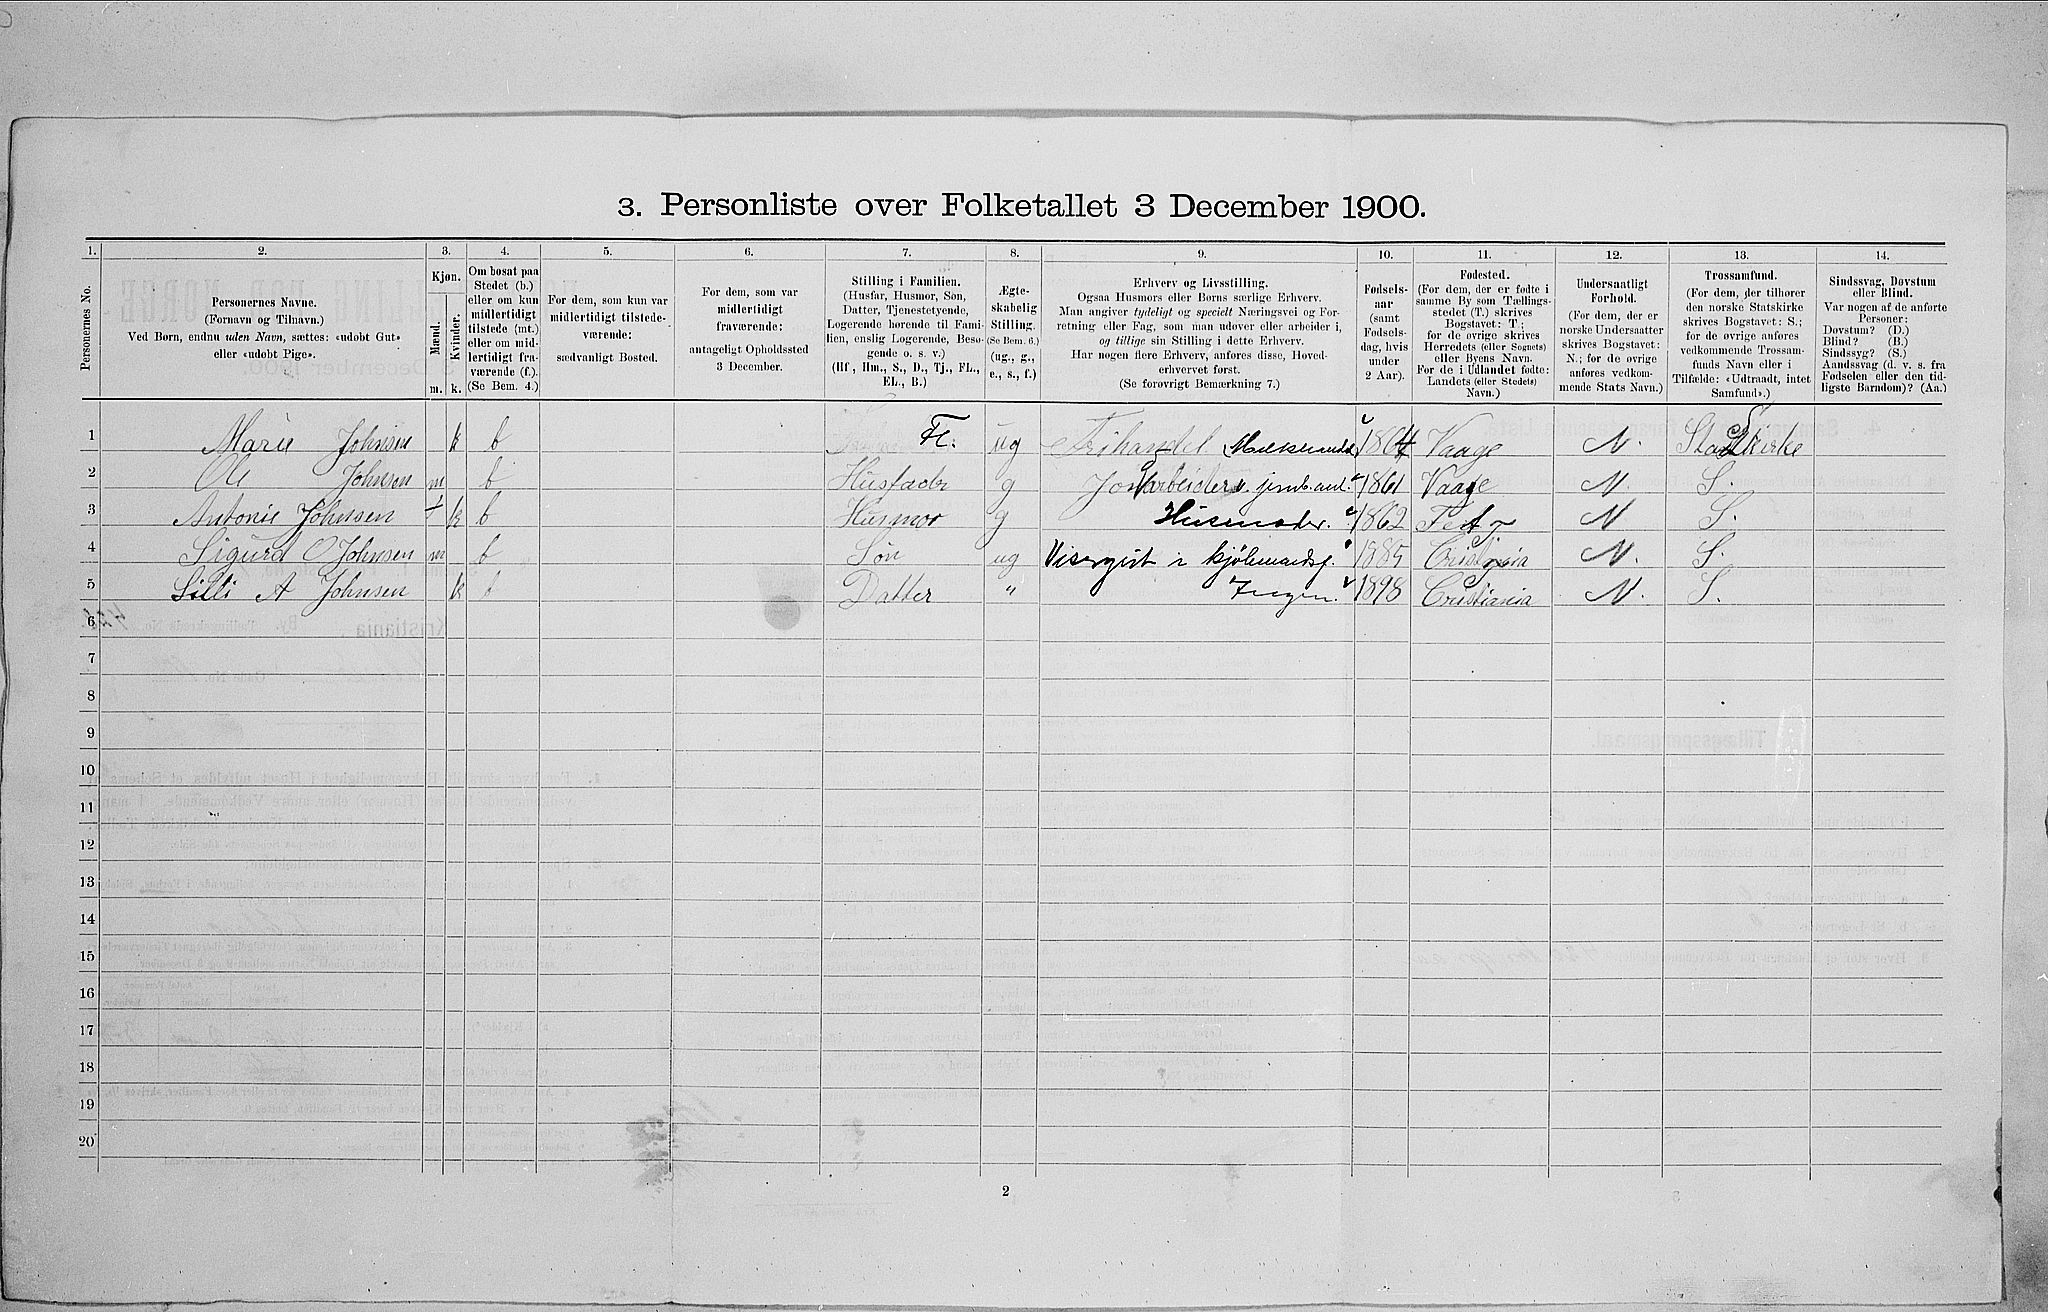 3. Personliste over Folketallet 3 December 1900.
1. 2. 3. 4. 5. 6. 7. 8. 9. 10. 11. 12. 13. 14.
Personernes No.
Personernes Navne.
(Fornavn og Tilnavn.)
Ved Børn, endnu uden Navn, sættes: «udøbt Gut»
eller «udøbt Pige».
Kjøn.
Mænd.
Kvinder.
m. k.
Om bosat paa
Stedet (b.)
eller om kun
midlertidigt
tilstede (mt.)
eller om mid-
lertidigt fra-
værende (f.).
(Se Bem. 4.)
For dem, som kun var
midlertidigt tilstede-
værende:
sædvanligt Bosted.
For dem, som var
midlertidigt
fraværende:
antageligt Opholdssted
3 December.
Stilling i Familien.
(Husfar, Husmor, Søn,
Datter, Tjenestetyende,
Logerende hørende til Fami-
lien, enslig Logerende, Besø-
gende o. s. v.)
(Hf., Hm., S., D., Tj., FL.,
EL., B.)
Ægte-
skabelig
Stilling.
(Se Bem. 6.)
(ug., g.,
e., s., f.)
Erhverv og Livsstilling.
Ogsaa Husmors eller Børns særlige Erhverv.
Man angiver tydeligt og specielt Næringsvei og For-
retning eller Fag, som man udøver eller arbeider i,
og tillige sin Stilling i dette Erhverv.
Har nogen flere Erhverv, anføres disse, Hoved-
erhvervet først.
(Se forøvrigt Bemærkning 7.)
Fødsels-
aar
(samt
Fødsels-
dag, hvis
under
2 Aar).
Fødested.
(For dem, der er fødte i
samme By som Tællings-
stedet (T.) skrives
Bogstavet: T.;
for de øvrige skrives
Herredets (eller Sognets)
eller Byens Navn.
For de i Udlandet fødte:
Landets (eller Stedets)
Navn.)
Undersaatligt
Forhold.
(For dem, der er
norske Undersaatter
skrives Bogstavet:
N.; for de øvrige
anføres vedkom-
mende Stats Navn.)
Trossamfund.
(For dem, der tilhører
den norske Statskirke
skrives Bogstavet: S.;
for de øvrige anføres
vedkommende Trossam-
funds Navn eller i
Tilfælde: «Udtraadt, intet
Samfund».)
Sindssvag, Døvstum
eller Blind.
Var nogen af de anførte
Personer:
Døvstum? (D.)
Blind? (B.)
Sindssyg? (S.)
Aandssvag (d. v. s. fra
Fødselen eller den tid-
ligste Barndom)? (Aa.)
1 Marie Johnsen k b Fl. ug Frihandel 1864 Vaage N. Statskirke
2 Ole Johnsen m b Husfader g 1861 Vaage N. S.
3 Antonie Johnsen k b Husmor g Husmoder. 1862 N S.
4 Sigurd O Johnsen m b Søn ug Visergut i kjølmandsf. 1885 Cristiania N. S.
5 Silli A Johnsen k b Datter " Ingen. 1898 Cristiania N. S.
6
7
8
9
10
11
12
13
14
15
16
17
18
19
20
2